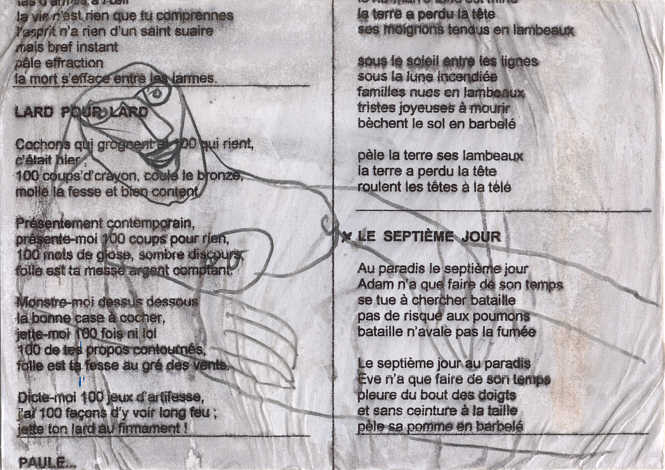 la vie n'est rien que tu comprennes
l'esprit n'a rien d'un saint suaire
mais bref instant
pâle effraction
la mort s'efface entre les larmes.
LARD POUR LARD
Cochons qui grognent et 100 qui rient,
c'était hier ;
100 coups d'crayon, coule le bronze,
molle la fesse et bien content.
Présentement contemporain,
présente-moi 100 coups pour rien,
100 mots de glose, sombre discours,
folle est ta messe argent comptant.
Monstre-moi dessus dessous
la bonne case à cocher,
jette-moi 100 fois ni loi
100 de tes propos contournés,
folle est ta fesse au gré des vents.
Dicte-moi 100 jeux d'artifesse,
j'ai 100 façons d'y voir long feu ;
jette ton lard au firmament !
PAULE...
la terre a perdu la tête
ses moignons tendus en lambeaux
sous le soleil entre les lignes
sous la lune incendiée
familles nues en lambeaux
tristes joyeuses à mourir
bèchent le sol en barbelé
pèle la terre ses lambeaux
la terre a perdu la tête
roulent les têtes à la télé
LE SEPTIÈME JOUR
Au paradis le septième jour
Adam n'a que faire de son temps
se tue à chercher bataille
pas de risque aux poumons
bataille n'avale pas la fumée
Le septième jour au paradis
Ève n'a que faire de son temps
pleure du bout des doigts
et sans ceinture à la taille
pèle sa pomme en barbelé